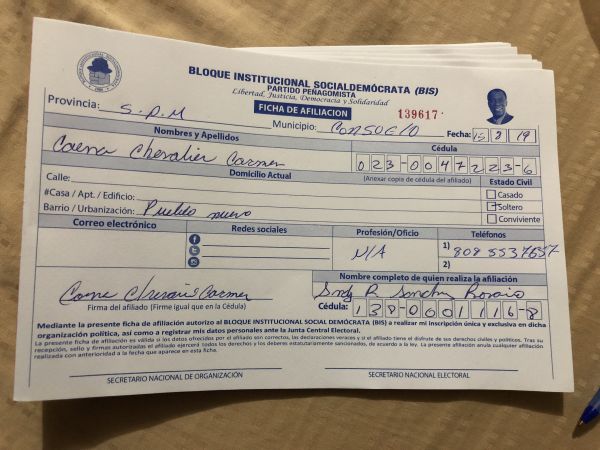 BLOQUE INSTITUCIONAL SOCIALDEMÓCRATA (BIS)
PARTIDO PEÑAGOMISTA
Libertad, Justicia, Democracia y Solidaridad
FICHA DE AFILIACION 139617
Provincia: S.P.M Municipio: CONSUELO Fecha: 15 2 19
Nombres y Apellidos Cédula
Chevalier Carmen 023-0047223-6
Domicilio Actual (Anexar copia de cédula del afiliado) Estado Civil
Calle: Casado
#Casa / Apt. / Edificio: Soltero
Barrio / Urbanización: Pueblo nuevo Conviviente
Correo electrónico Redes sociales Profesión/Oficio Teléfonos
N/A 1) 809 5537657
2)
Nombre completo de quien realiza la afiliación
Carmen R Sanchez Rosario
Firma del afiliado (Firme igual que en la Cédula) Cédula: 138-0001116-8
Mediante la presente ficha de afiliación autorizo al BLOQUE INSTITUCIONAL SOCIAL DEMÓCRATA (BIS) a realizar mi inscripción única y exclusiva en dicha
organización política, así como a registrar mis datos personales ante la Junta Central Electoral.
La presente ficha de afiliación es válida si los datos ofrecidos por el afiliado son correctos, las declaraciones veraces y si el afiliado tiene el disfrute de sus derechos civiles y políticos. Tras su
recepción, sello y firmas autorizadas el afiliado ejercerá todos los derechos y los deberes estatutariamente sancionados, de acuerdo a la ley. La presente afiliación anula cualquier afiliación
realizada con anterioridad a la fecha que aparece en esta ficha.
SECRETARIO NACIONAL DE ORGANIZACIÓN SECRETARIO NACIONAL ELECTORAL